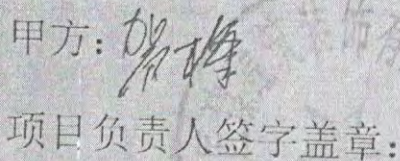 甲方：
项目负责人签字盖章：